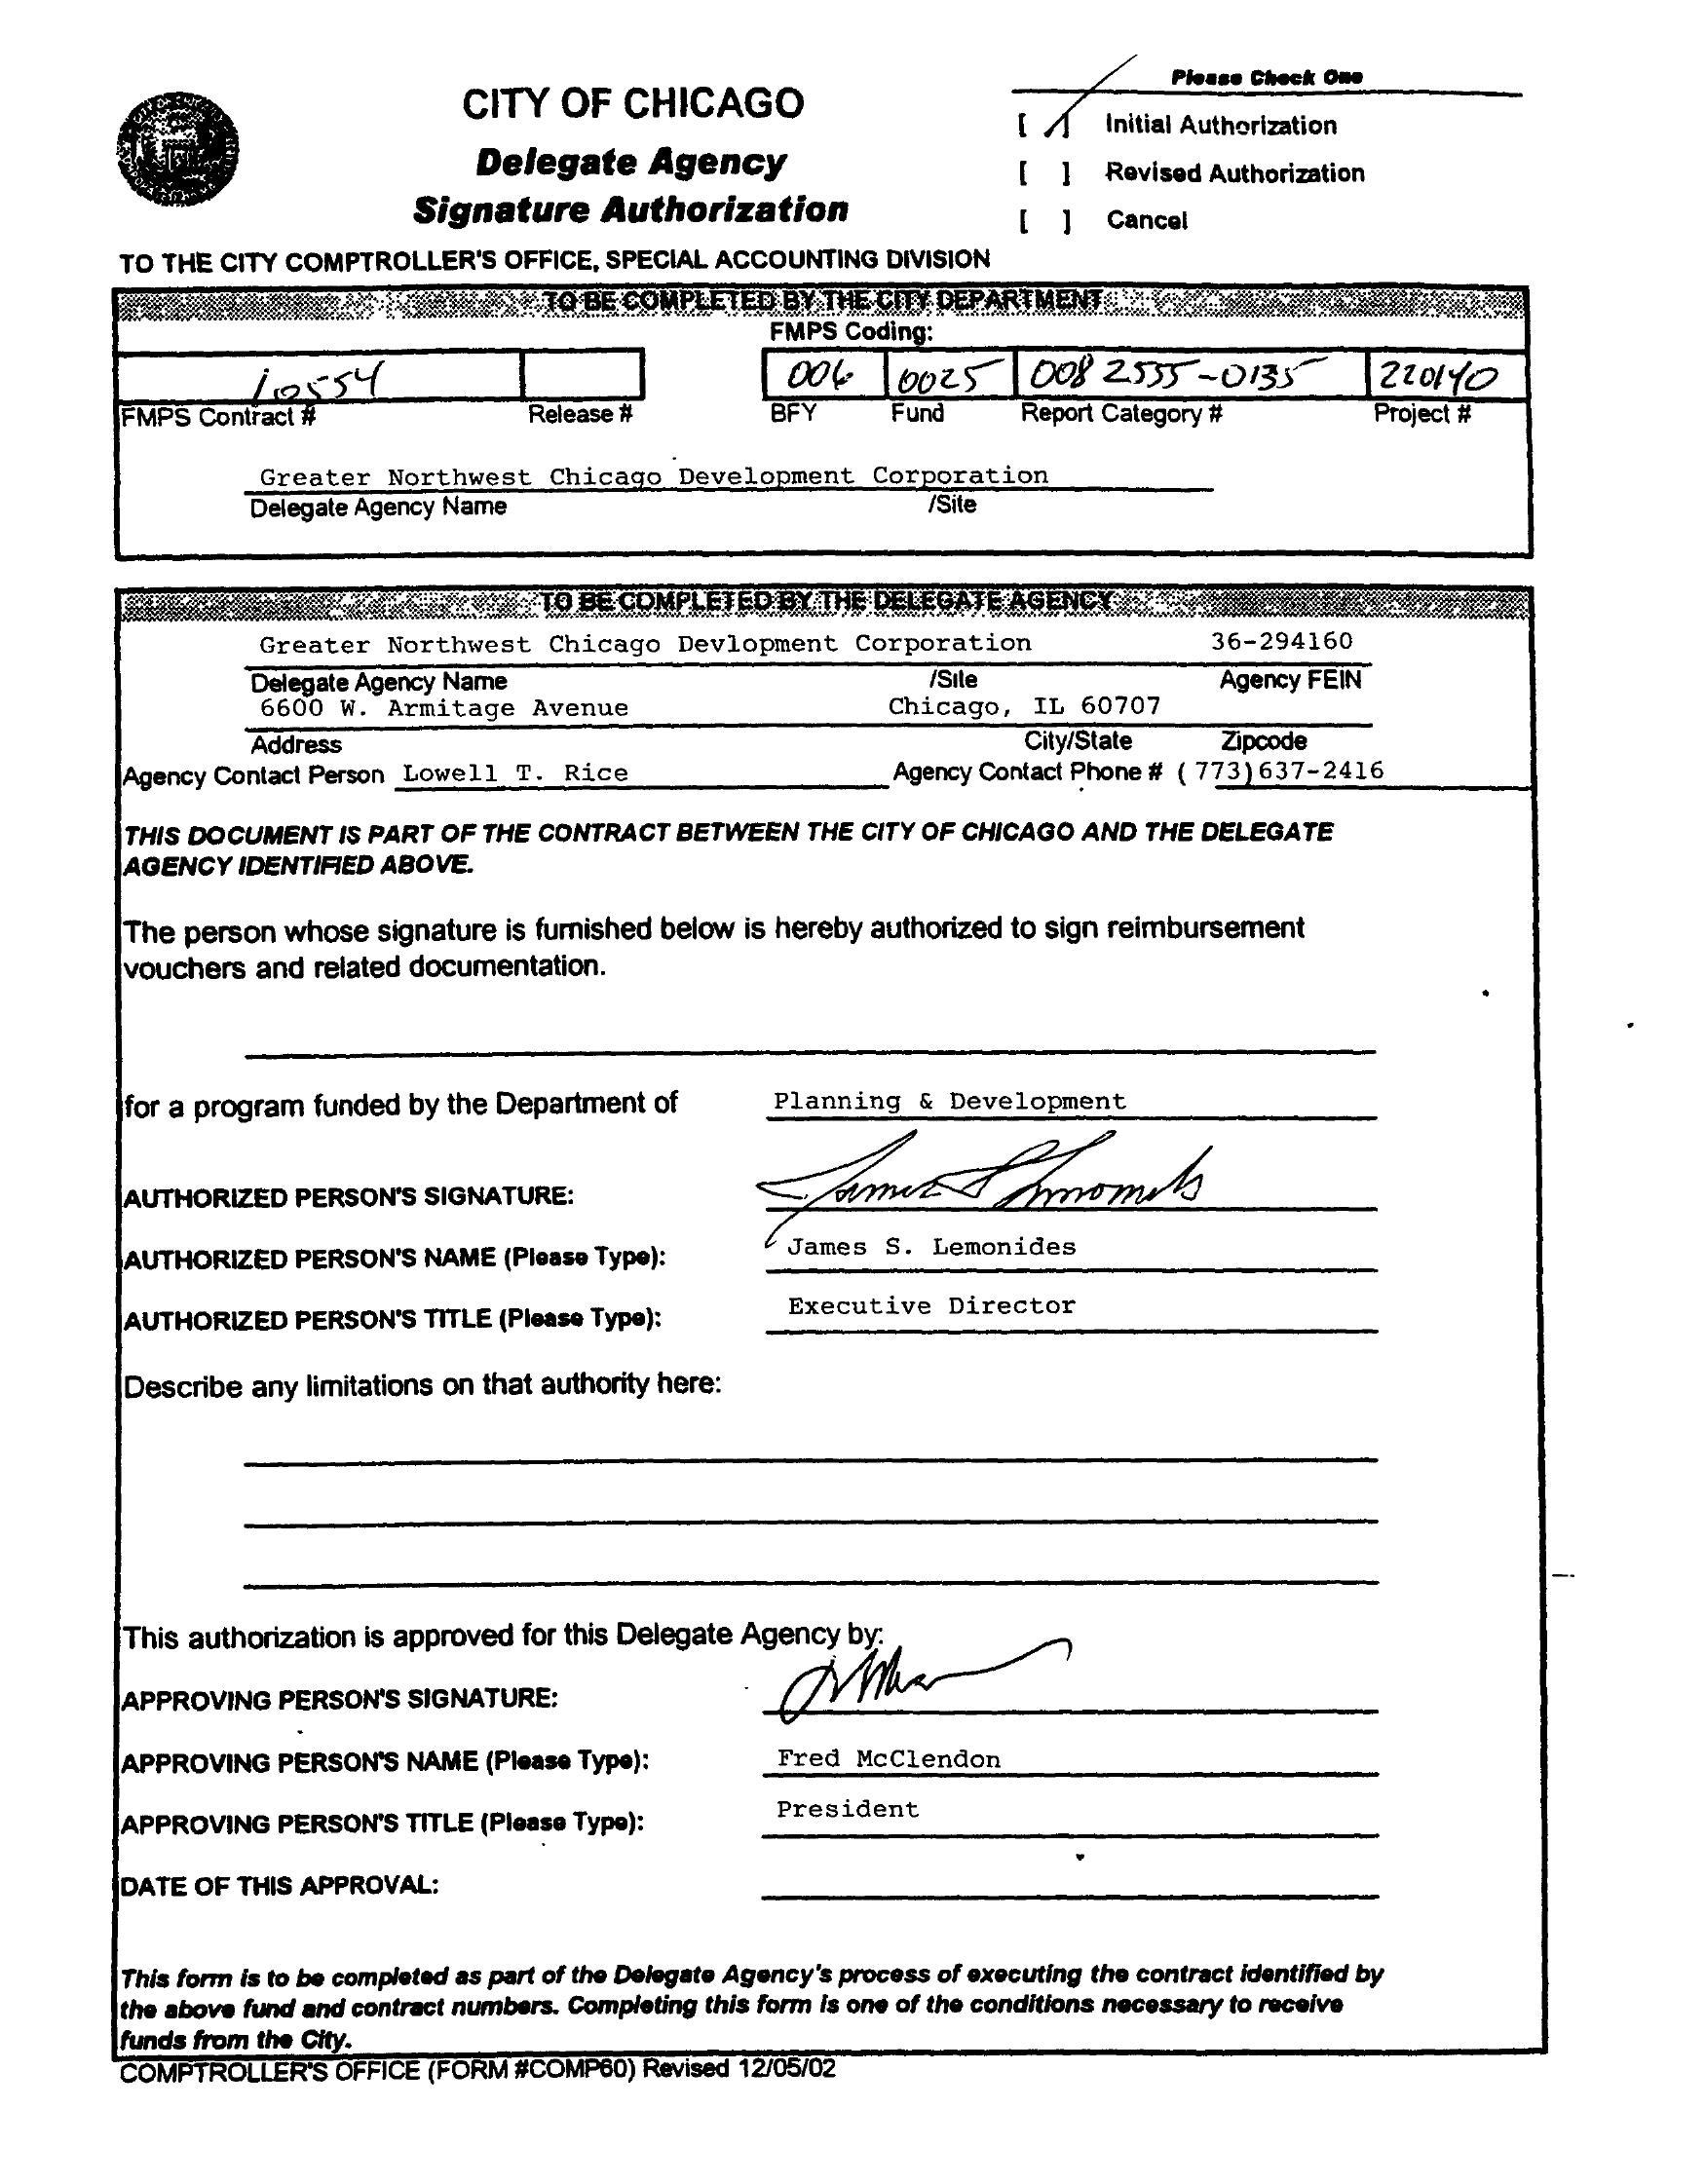 Please Check One
CITY OF CHICAGO
[ / ] Initial Authorization
Delegate Agency
[ ] Revised Authorization
Signature Authorization
[ ] Cancel
TO THE CITY COMPTROLLER'S OFFICE, SPECIAL ACCOUNTING DIVISION
TO BE COMPLETED BY THE CITY DEPARTMENT
FMPS Coding:
10554 006 0025 008 2555-0135 220140
FMPS Contract # Release # BFY Fund Report Category # Project #
Greater Northwest Chicago Development Corporation
Delegate Agency Name /Site
TO BE COMPLETED BY THE DELEGATE AGENCY
Greater Northwest Chicago Devlopment Corporation 36-294160
Delegate Agency Name /Site Agency FEIN
6600 W. Armitage Avenue Chicago, IL 60707
Address City/State Zipcode
Agency Contact Person Lowell T. Rice Agency Contact Phone # (773)637-2416
THIS DOCUMENT IS PART OF THE CONTRACT BETWEEN THE CITY OF CHICAGO AND THE DELEGATE
AGENCY IDENTIFIED ABOVE.
The person whose signature is furnished below is hereby authorized to sign reimbursement
vouchers and related documentation.
for a program funded by the Department of Planning & Development
AUTHORIZED PERSON'S SIGNATURE:
AUTHORIZED PERSON'S NAME (Please Type): James S. Lemonides
AUTHORIZED PERSON'S TITLE (Please Type): Executive Director
Describe any limitations on that authority here:
This authorization is approved for this Delegate Agency by:
APPROVING PERSON'S SIGNATURE:
APPROVING PERSON'S NAME (Please Type): Fred McClendon
APPROVING PERSON'S TITLE (Please Type): President
DATE OF THIS APPROVAL:
This form is to be completed as part of the Delegate Agency's process of executing the contract identified by
the above fund and contract numbers. Completing this form is one of the conditions necessary to receive
funds from the City.
COMPTROLLER'S OFFICE (FORM #COMP60) Revised 12/05/02